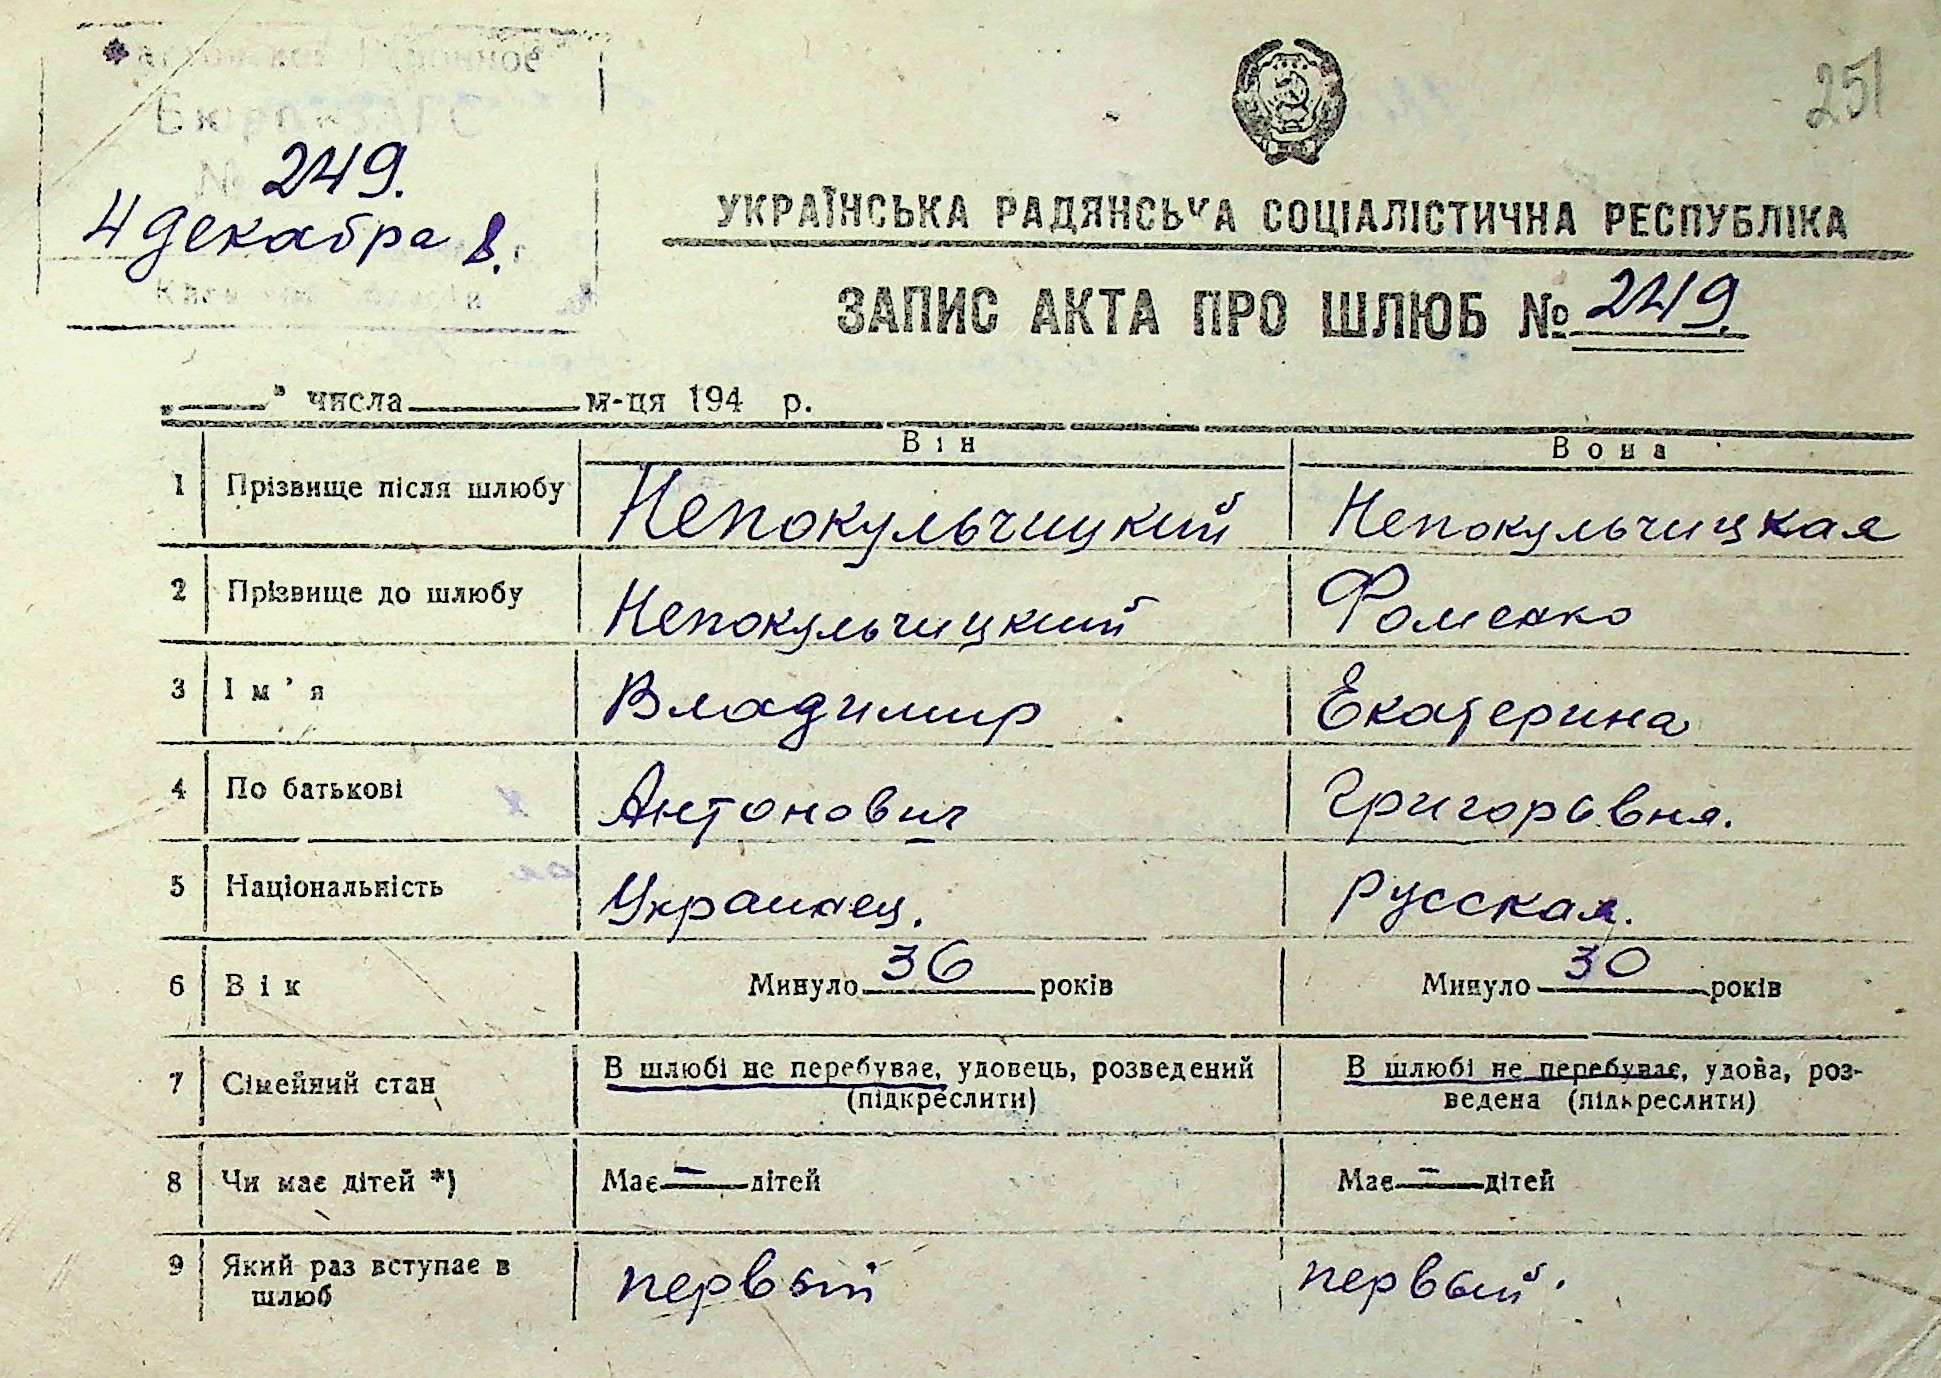 Бюро ЗАГС
251
№ 249.
4 декабря в.
УКРАЇНСЬКА РАДЯНСЬКА СОЦІАЛІСТИЧНА РЕСПУБЛІКА
ЗАПИС АКТА ПРО ШЛЮБ № 249.
„ " числа м-ця 194 р.
Він Вона
1 Прізвище після шлюбу Непокульчицкий Непокульчицкая
2 Прізвище до шлюбу Непокульчицкий Фоменко
3 Ім'я Владимир Екатерина
4 По батькові Антонович Григорьевна.
5 Національність Украинец. русская.
6 Вік Минуло 36 років Минуло 30 років
7 Сімейний стан В шлюбі не перебуває, удовець, розведений В шлюбі не перебуває, удова, роз-
(підкреслити) ведена (підкреслити)
8 Чи має дітей *) Має – дітей Має – дітей
9 Який раз вступає в первый первый.
шлюб